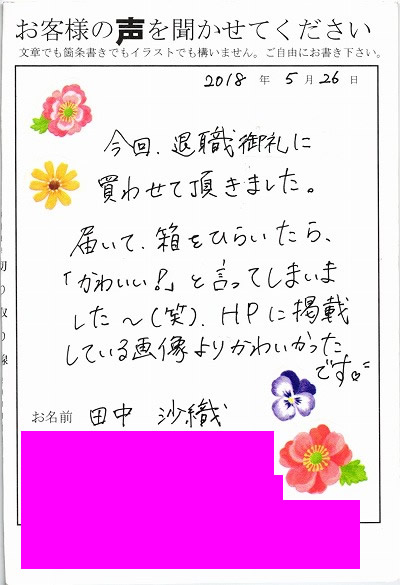 お客様の声を聞かせてください
文章でも箇条書きでもイラストでも構いません。ご自由にお書き下さい。
2018 年 5 月 26 日
今回、退職御礼に
買わせて頂きました。
届いて、箱をひらいたら、
「かわいい!」と言ってしまいま
した〜(笑)、HPに掲載
している画像よりかわいかった
です♡
お名前 田中 沙織
切り取り線